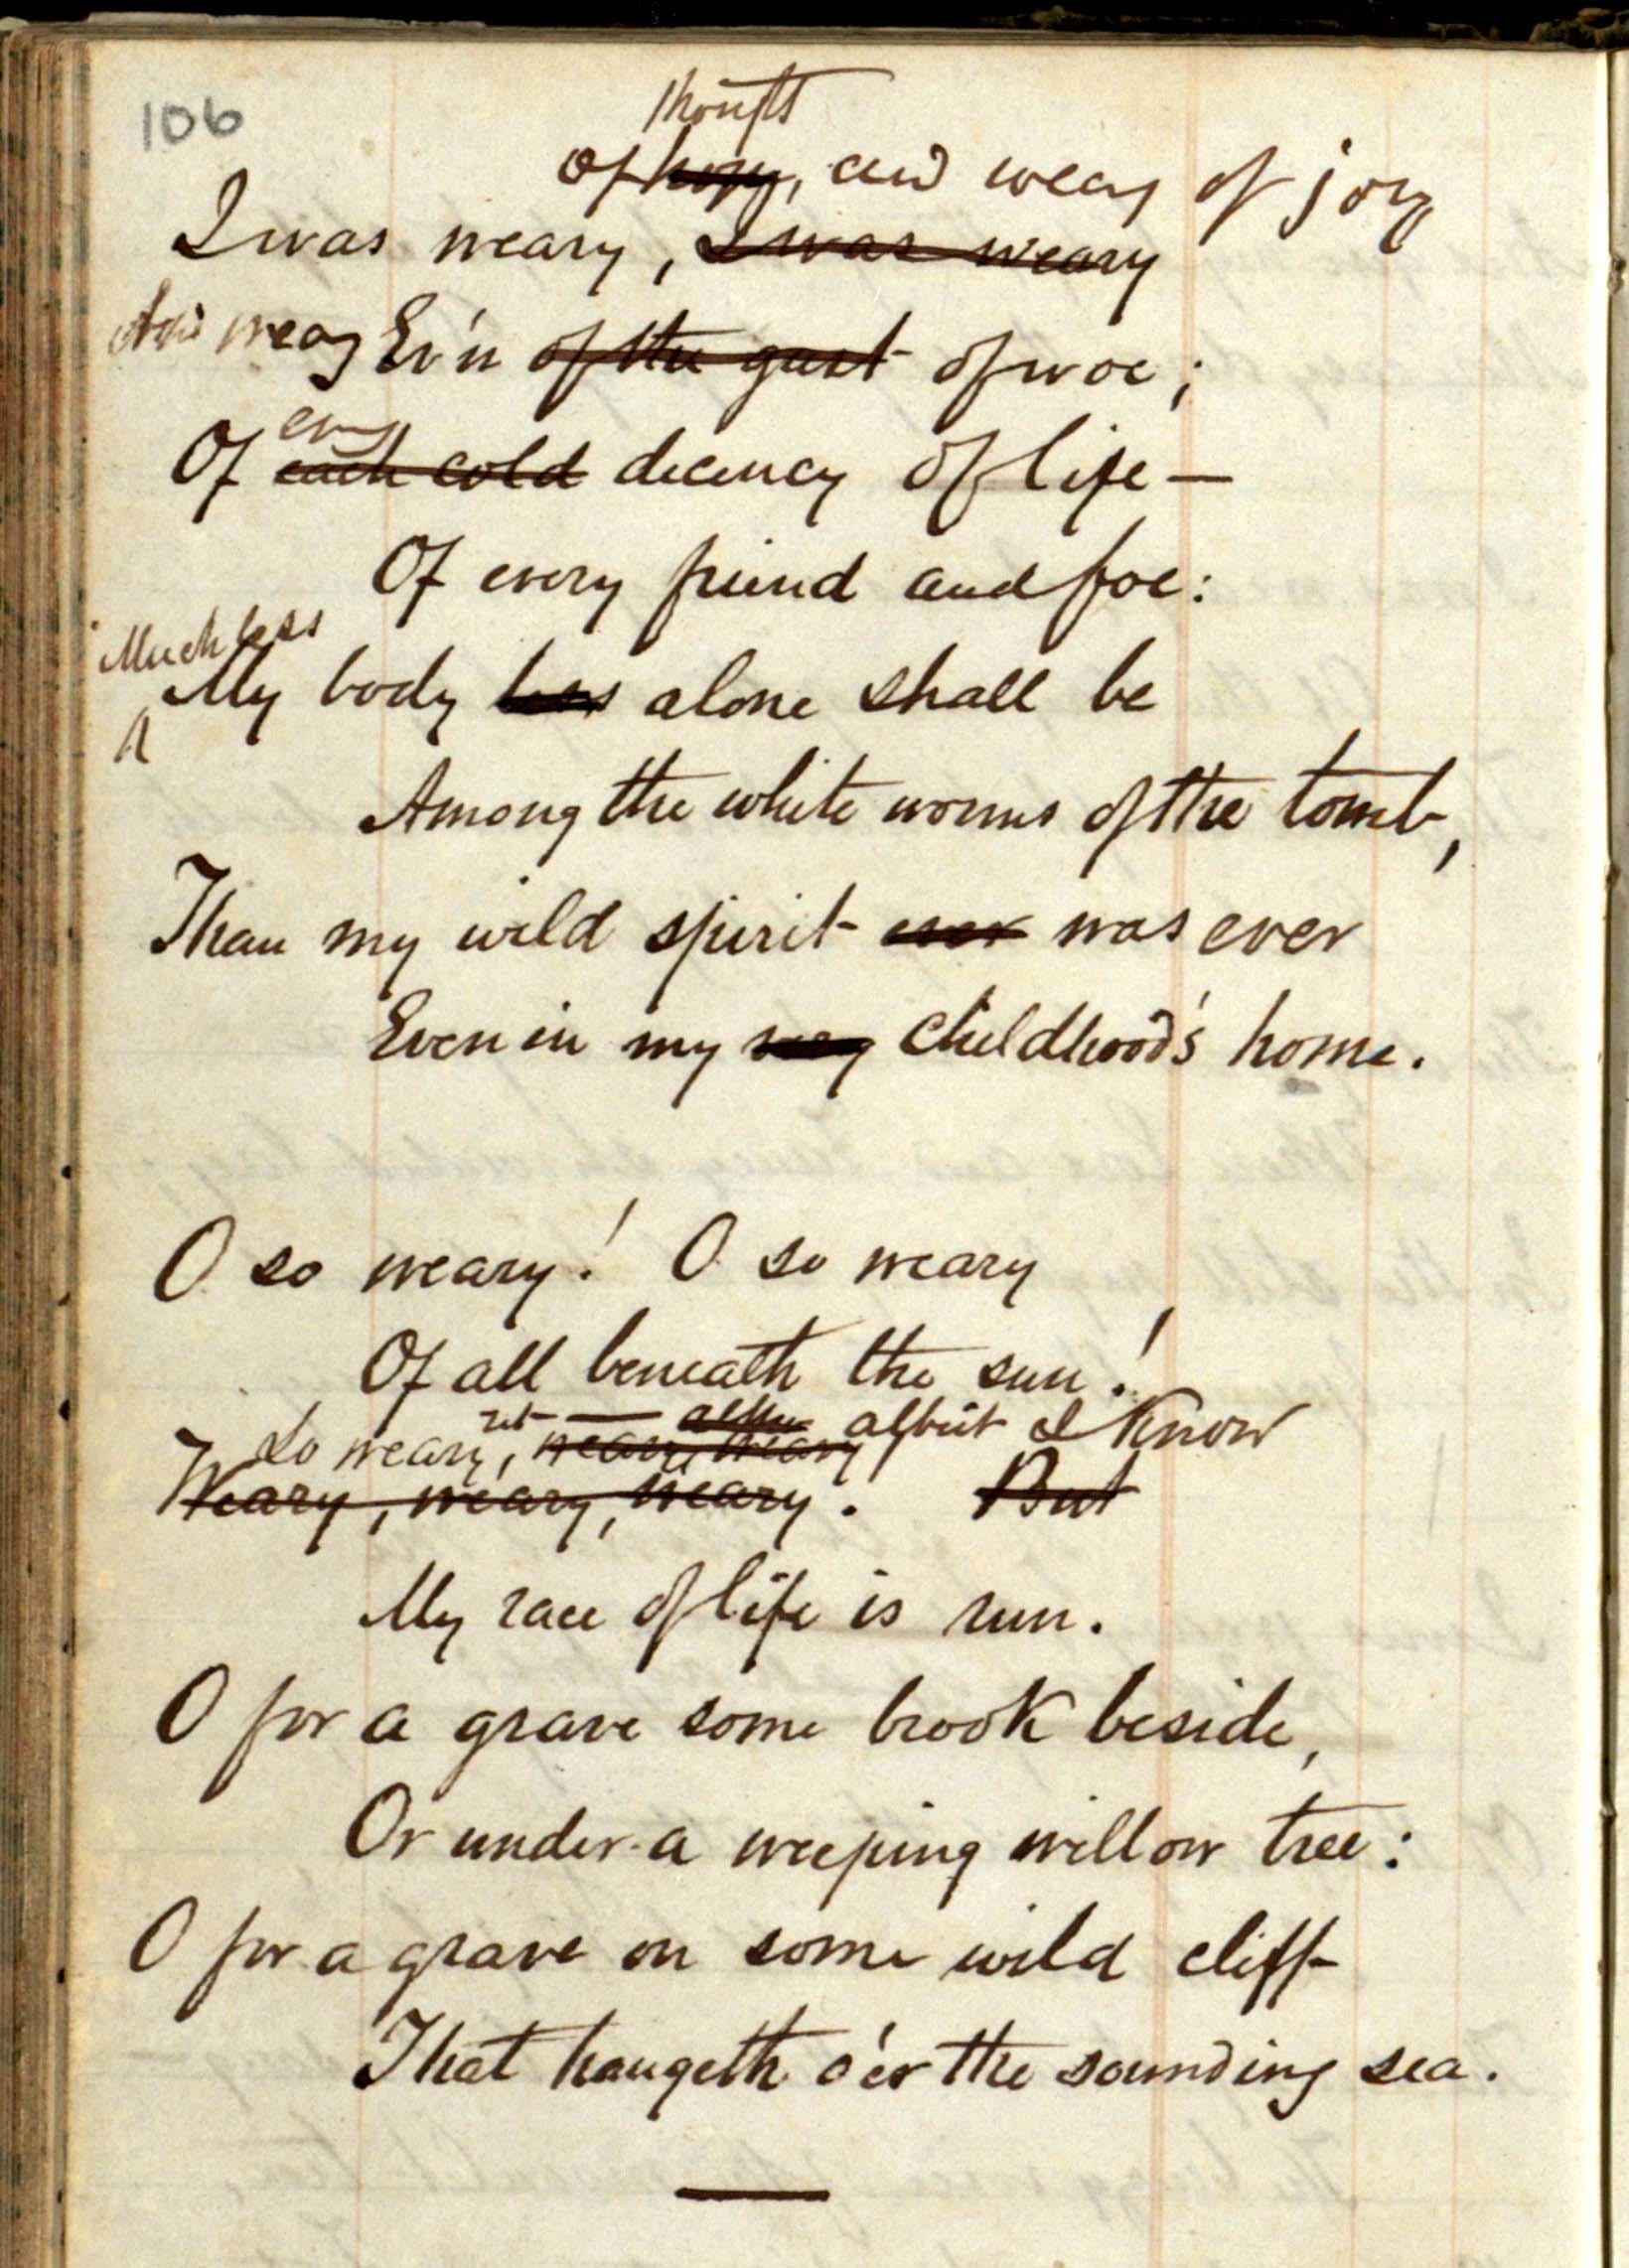 106
thoughts
of hope, and weary of joy
I was weary, I was weary
And weary Ev'n of the gust of woe;
every
Of each cold decency of life—
Of every friend and foe:
Much less
My body less alone shall be
Among the white worms of the tomb,
Than my wild spirit ever was ever
Even in my very childhood's home.
O so weary! O so weary
Of all beneath the sun!
albeit I know
So weary, weary, weary
Weary, weary, weary! But
My race of life is run.
O for a grave some brook beside,
Or under a weeping willow tree:
O for a grave on some wild cliff
That hangeth o'er the sounding sea.